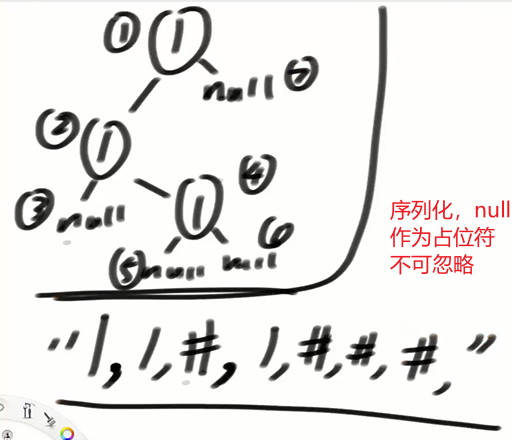 ① 1
null ⑦
② 1
③ null
④ 1
⑤ null null ⑥
序列化，null
作为占位符
不可忽略
"1,1,#,1,#,#,#,"